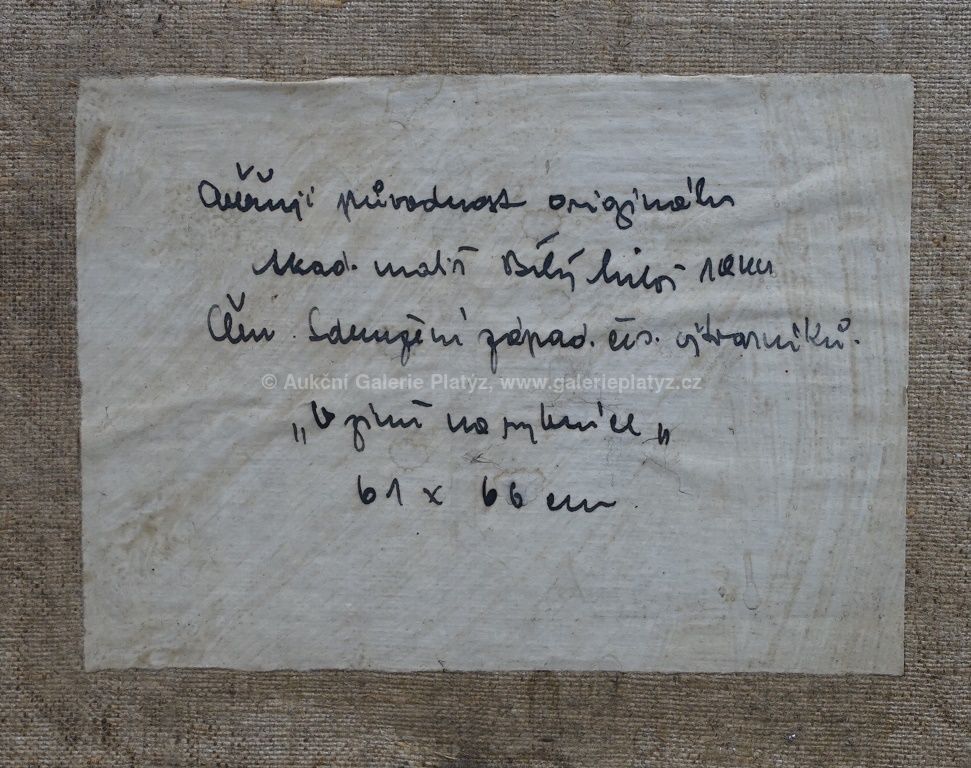 Ověřuji původnost originálu
Akad. malíř Bílý Miloš
Člen Sdružení západ. čes. výtvarníků.
© Aukční Galerie Platýz, www.galerieplatyz.cz
„V zimě na rybníce„
61 x 66 cm